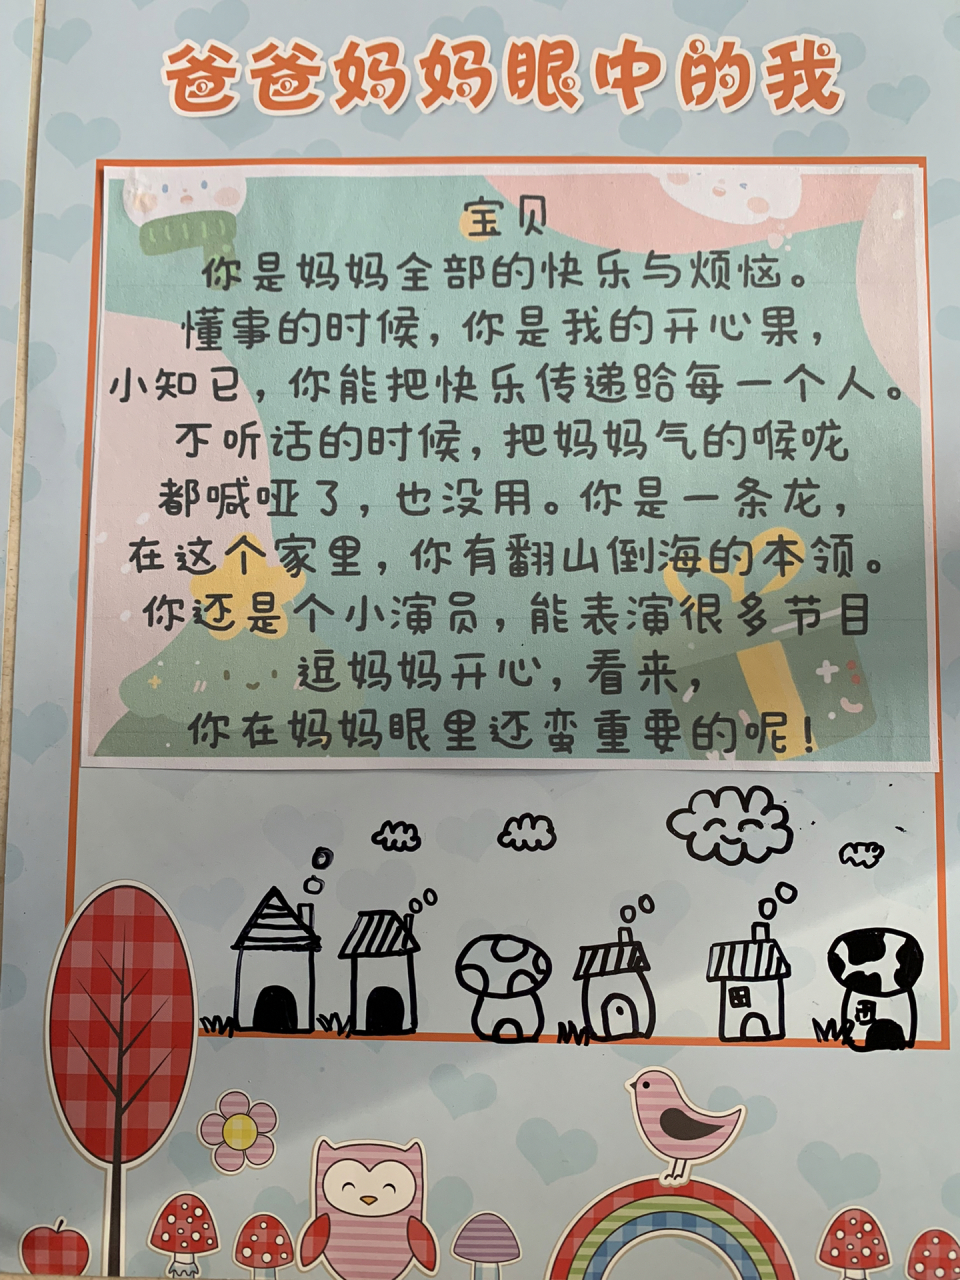 爸爸妈妈眼中的我
宝贝
你是妈妈全部的快乐与烦恼。
懂事的时候，你是我的开心果，
小知已，你能把快乐传递给每一个人。
不听话的时候，把妈妈气的喉咙
都喊哑了，也没用。你是一条龙，
在这个家里，你有翻山倒海的本领。
你还是个小演员，能表演很多节目
逗妈妈开心，看来，
你在妈妈眼里还蛮重要的呢！